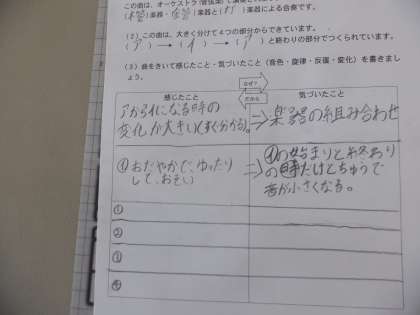 この曲は、オーケストラ(管弦楽)で演奏
(木管)楽器・(金管)楽器と(打)楽器による合奏です。
(2) この曲は、大きく分けて4つの部分からできています。
(ア)→(イ)→(ア)と終わりの部分でつくられています。
(3) 曲をきいて感じたこと・気づいたこと(音色・旋律・反復・変化)を書きましょう。
なぜ?
だから
感じたこと
気づいたこと
アからイになる時の
変化が大きい(すぐ分かる)。
⇒楽器の組み合わせ
①おだやかで、ゆったり
して、おそい
⇒
①の始まりと終おり
の時だけとちゅうで
音が小さくなる。
①
②
③
④